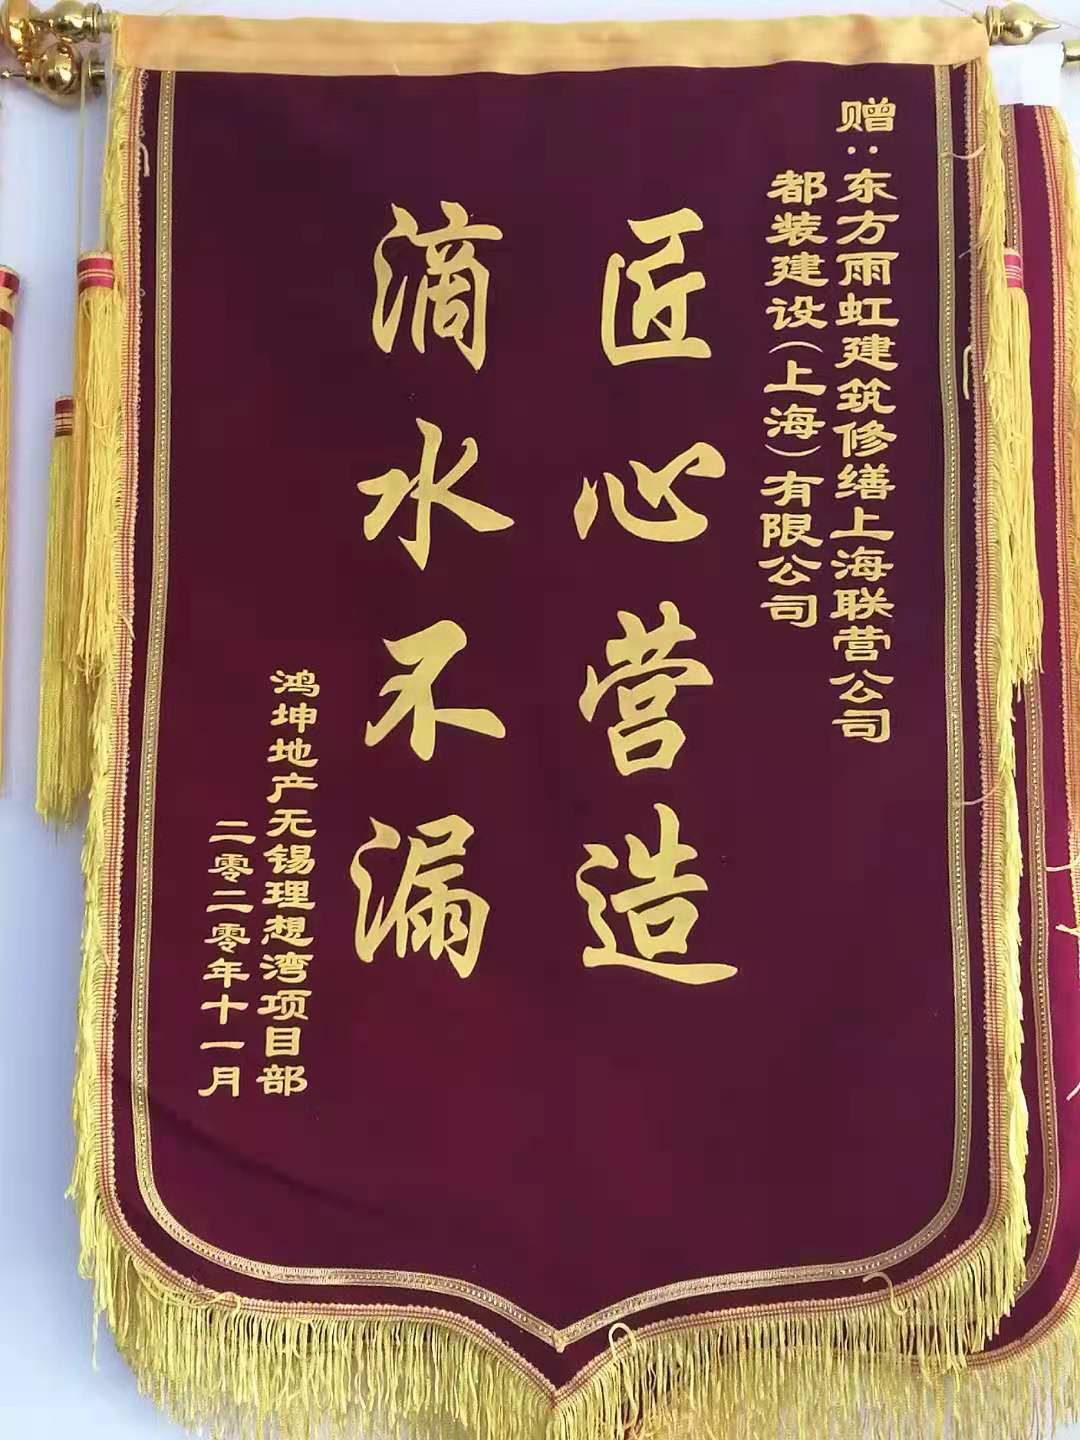 赠：东方雨虹建筑修缮上海联营公司
都装建设（上海）有限公司
匠心营造
滴水不漏
鸿坤地产无锡理想湾项目部
二零二零年十一月